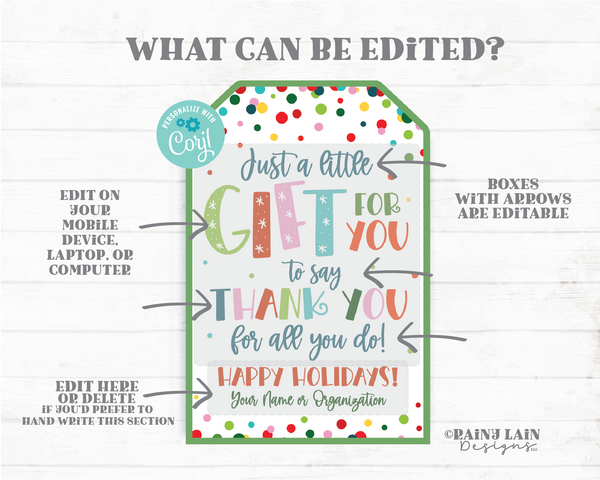 WHAT CAN BE EDITED?
PERSONALIZE WITH
Corjl
Just a little
GIFT FOR YOU
to say
THANK YOU
for all you do!
HAPPY HOLIDAYS!
Your Name or Organization
EDIT ON
YOUR
MOBILE
DEVICE,
LAPTOP, OR
COMPUTER
BOXES
WITH ARROWS
ARE EDITABLE
EDIT HERE
OR DELETE
IF YOU'D PREFER TO
HAND WRITE THIS SECTION
©RAINY LAIN
Designs LLC